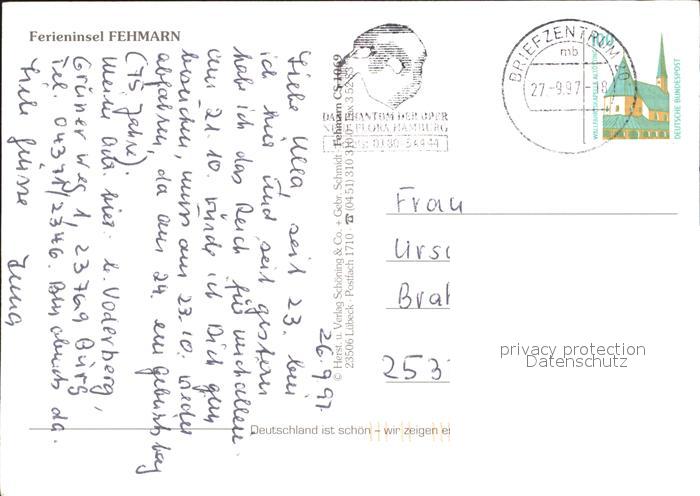 Ferieninsel FEHMARN
26.9.97
Liebe Ulla, seit 23. bin
ich hier und seit gestern
habe ich das Reich für mich allein.
am 21.10. würde ich Dich gern
besuchen, muss am 23.10. wieder
abfahren, da am 24. ein Geburtstag
(75 Jahre).
Meine Adr. hier: b. Voderberg,
Grüner Weg 1, 23769 Burg
Tel. 04371/2346. Bin abends da.
Liebe Grüsse
© Herst. u. Verlag Schöning & Co. + Gebr. Schmidt · Fehmarn CS 1069
23506 Lübeck · Postfach 1710 · ☎ (04 51) 310 310
DAS PHANTOM DER OPER
NEUE FLORA HAMBURG
BRIEFZENTRUM
mb
27.-9.97-18
100
DEUTSCHE BUNDESPOST
Frau
Urs
Bra
253
privacy protection
Datenschutz
Deutschland ist schön – wir zeigen es